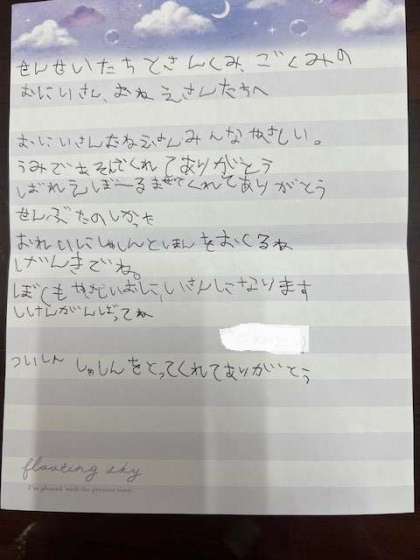 せんせいたちとさんくみ、ごくみの
おにいさん、おねえさんたちへ
おにいさんおねえさんみんなやさしい。
うみであそばくれてありがとう
ばれえぼーるまぜてくれてありがとう
ぜんぶたのしかった
おれいにしゃしんとほんをおくるね
げんきでね。
ぼくもやさしいおにいさんになります
しけんがんばってね
ついしん しゃしんをとってくれてありがとう
floating sky